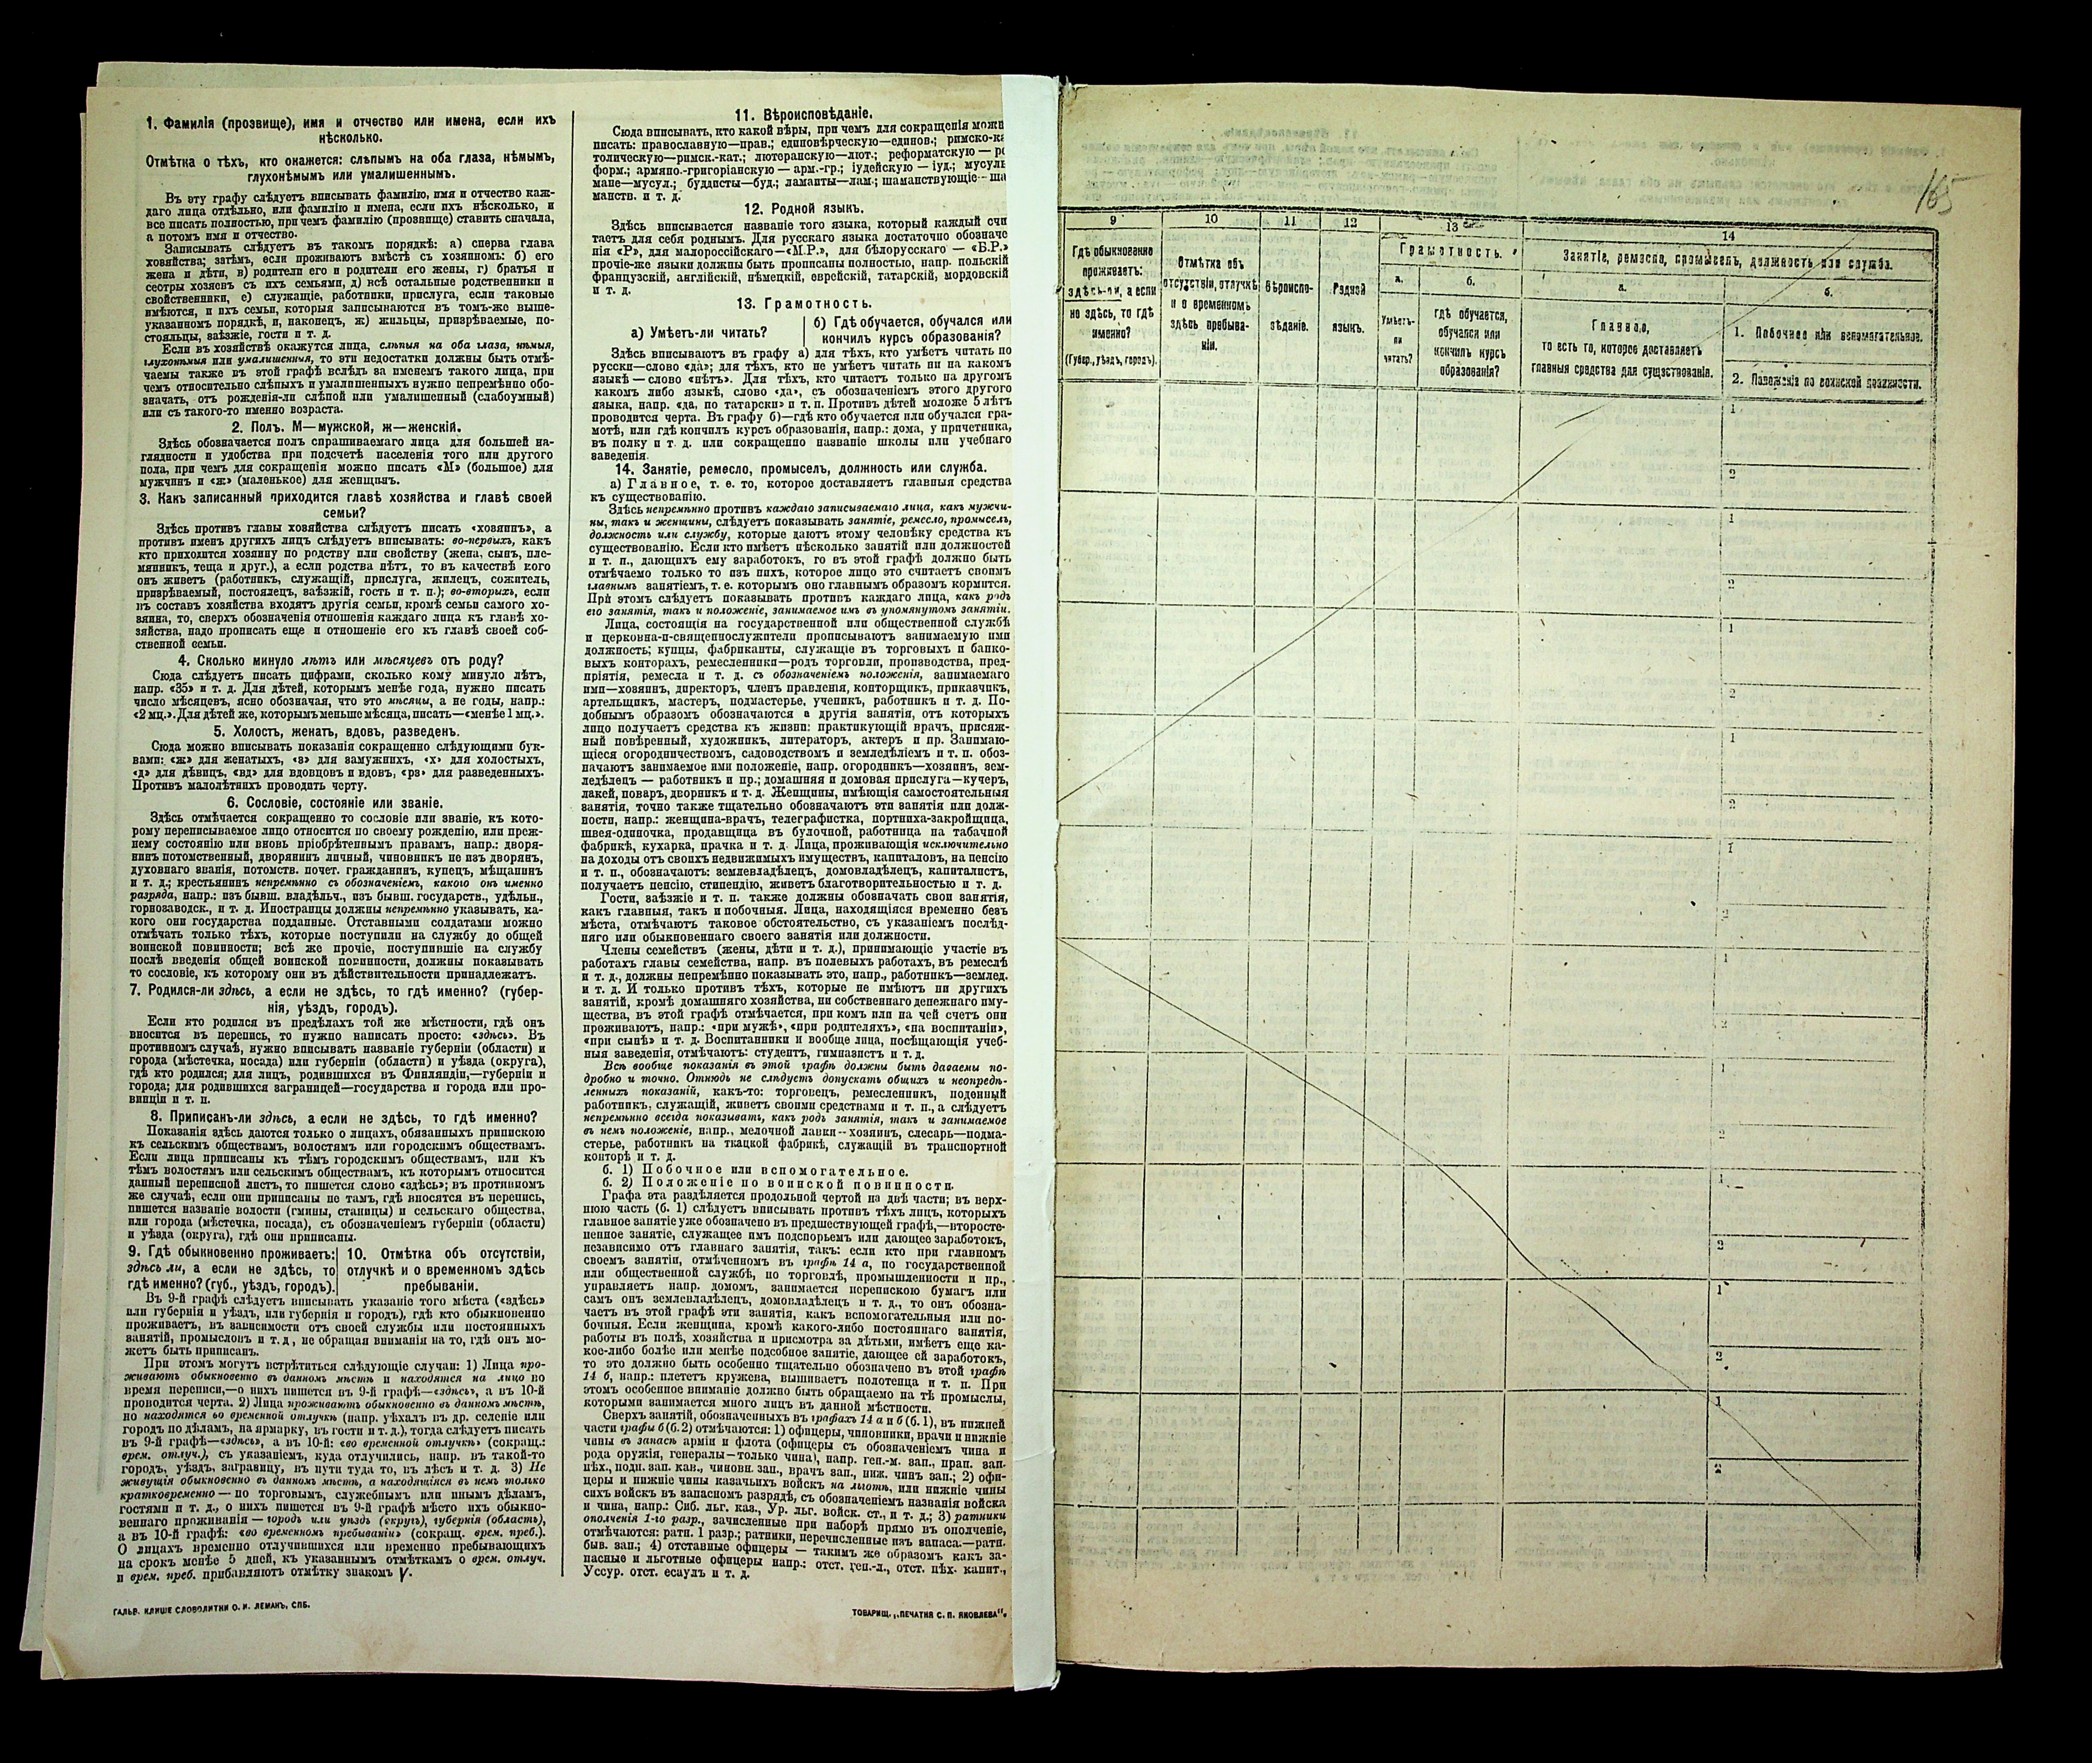 1. Фамилія (прозвище), имя и отчество или имена, если ихъ
нѣсколько.
Отмѣтка о тѣхъ, кто окажется: слѣпымъ на оба глаза, нѣмымъ,
глухонѣмымъ или умалишеннымъ.
Въ эту графу слѣдуетъ вписывать фамилію, имя и отчество каж-
даго лица отдѣльно, или фамилію и имена, если ихъ нѣсколько, и
все писать полностью, при чемъ фамилію (прозвище) ставить сначала,
а потомъ имя и отчество.
Записывать слѣдуетъ въ такомъ порядкѣ: а) сперва глава
хозяйства; затѣмъ, если проживаютъ вмѣстѣ съ хозяиномъ: б) его
жена и дѣти, в) родители его и родители его жены, г) братья и
сестры хозяевъ съ ихъ семьями, д) всѣ остальные родственники и
свойственники, е) служащіе, работники, прислуга, если таковые
имѣются, и ихъ семьи, которыя записываются въ томъ-же выше-
указанномъ порядкѣ, и, наконецъ, ж) жильцы, призрѣваемые, по-
стояльцы, заѣзжіе, гости и т. д.
Если въ хозяйствѣ окажутся лица, слѣпыя на оба глаза, нѣмыя,
глухонѣмыя или умалишенныя, то эти недостатки должны быть отмѣ-
чаемы также въ этой графѣ вслѣдъ за именемъ такого лица, при
чемъ относительно слѣпыхъ и умалишенныхъ нужно непремѣнно обо-
значать, отъ рожденія-ли слѣпой или умалишенный (слабоумный)
или съ такого-то именно возраста.
2. Полъ. М—мужской, ж—женскій.
Здѣсь обозначается полъ спрашиваемаго лица для большей на-
глядности и удобства при подсчетѣ населенія того или другого
пола, при чемъ для сокращенія можно писать «М» (большое) для
мужчинъ и «ж» (маленькое) для женщинъ.
3. Какъ записанный приходится главѣ хозяйства и главѣ своей
семьи?
Здѣсь противъ главы хозяйства слѣдуетъ писать «хозяинъ», а
противъ именъ другихъ лицъ слѣдуетъ вписывать: во-первыхъ, какъ
кто приходится хозяину по родству или свойству (жена, сынъ, пле-
мянникъ, теща и друг.), а если родства нѣтъ, то въ качествѣ кого
онъ живетъ (работникъ, служащій, прислуга, жилецъ, сожитель,
призрѣваемый, постоялецъ, заѣзжій, гость и т. п.); во-вторыхъ, если
въ составъ хозяйства входятъ другія семьи, кромѣ семьи самого хо-
зяина, то, сверхъ обозначенія отношенія каждаго лица къ главѣ хо-
зяйства, надо прописать еще и отношеніе его къ главѣ своей соб-
ственной семьи.
4. Сколько минуло лѣтъ или мѣсяцевъ отъ роду?
Сюда слѣдуетъ писать цифрами, сколько кому минуло лѣтъ,
напр. «35» и т. д. Для дѣтей, которымъ менѣе года, нужно писать
число мѣсяцевъ, ясно обозначая, что это мѣсяцы, а не годы, напр.:
«2 мц.». Для дѣтей же, которымъ меньше мѣсяца, писать—«менѣе 1 мц.».
5. Холостъ, женатъ, вдовъ, разведенъ.
Сюда можно вписывать показанія сокращенно слѣдующими бук-
вами: «ж» для женатыхъ, «з» для замужнихъ, «х» для холостыхъ,
«д» для дѣвицъ, «вд» для вдовцовъ и вдовъ, «рз» для разведенныхъ.
Противъ малолѣтнихъ проводить черту.
6. Сословіе, состояніе или званіе.
Здѣсь отмѣчается сокращенно то сословіе или званіе, къ кото-
рому переписываемое лицо относится по своему рожденію, или преж-
нему состоянію или вновь пріобрѣтеннымъ правамъ, напр.: дворя-
нинъ потомственный, дворянинъ личный, чиновникъ не изъ дворянъ,
духовнаго званія, потомств. почет. гражданинъ, купецъ, мѣщанинъ
и т. д.; крестьянинъ непремѣнно съ обозначеніемъ, какого онъ именно
разряда, напр.: изъ бывш. владѣльч., изъ бывш. государств., удѣльн.,
горнозаводск., и т. д. Иностранцы должны непремѣнно указывать, ка-
кого они государства подданные. Отставными солдатами можно
отмѣчать только тѣхъ, которые поступили на службу до общей
воинской повинности; всѣ же прочіе, поступившіе на службу
послѣ введенія общей воинской повинности, должны показывать
то сословіе, къ которому они въ дѣйствительности принадлежатъ.
7. Родился-ли здѣсь, а если не здѣсь, то гдѣ именно? (губер-
нія, уѣздъ, городъ).
Если кто родился въ предѣлахъ той же мѣстности, гдѣ онъ
вносится въ перепись, то нужно написать просто: «здѣсь». Въ
противномъ случаѣ, нужно вписывать названіе губерніи (области) и
города (мѣстечка, посада) или губерніи (области) и уѣзда (округа),
гдѣ кто родился; для лицъ, родившихся въ Финляндіи,—губерніи и
города; для родившихся заграницей—государства и города или про-
винціи и т. п.
8. Приписанъ-ли здѣсь, а если не здѣсь, то гдѣ именно?
Показанія здѣсь даются только о лицахъ, обязанныхъ припискою
къ сельскимъ обществамъ, волостямъ или городскимъ обществамъ.
Если лица приписаны къ тѣмъ городскимъ обществамъ, или къ
тѣмъ волостямъ или сельскимъ обществамъ, къ которымъ относится
данный переписной листъ, то пишется слово «здѣсь»; въ противномъ
же случаѣ, если они приписаны не тамъ, гдѣ вносятся въ перепись,
пишется названіе волости (гмины, станицы) и сельскаго общества,
или города (мѣстечка, посада), съ обозначеніемъ губерніи (области)
и уѣзда (округа), гдѣ они приписаны.
9. Гдѣ обыкновенно проживаетъ:
здѣсь ли, а если не здѣсь, то
гдѣ именно? (губ., уѣздъ, городъ).
10. Отмѣтка объ отсутствіи,
отлучкѣ и о временномъ здѣсь
пребываніи.
Въ 9-й графѣ слѣдуетъ вписывать указаніе того мѣста («здѣсь»
или губернія и уѣздъ, или губернія и городъ), гдѣ кто обыкновенно
проживаетъ, въ зависимости отъ своей службы или постоянныхъ
занятій, промысловъ и т. д., не обращая вниманія на то, гдѣ онъ мо-
жетъ быть приписанъ.
При этомъ могутъ встрѣтиться слѣдующіе случаи: 1) Лица про-
живаютъ обыкновенно въ данномъ мѣстѣ и находятся на лицо во
время переписи,—о нихъ пишется въ 9-й графѣ—«здѣсь», а въ 10-й
проводится черта. 2) Лица проживаютъ обыкновенно въ данномъ мѣстѣ,
но находятся во временной отлучкѣ (напр. уѣхалъ въ др. селеніе или
городъ по дѣламъ, на ярмарку, въ гости и т. д.), тогда слѣдуетъ писать
въ 9-й графѣ—«здѣсь», а въ 10-й: «во временной отлучкѣ» (сокращ.:
врем. отлуч.), съ указаніемъ, куда отлучились, напр. въ такой-то
городъ, уѣздъ, заграницу, въ пути туда то, въ лѣсъ и т. д. 3) Не
живущія обыкновенно въ данномъ мѣстѣ, а находящіяся въ немъ только
кратковременно — по торговымъ, служебнымъ или инымъ дѣламъ,
гостями и т. д., о нихъ пишется въ 9-й графѣ мѣсто ихъ обыкно-
веннаго проживанія — городъ или уѣздъ (округъ), губернія (область),
а въ 10-й графѣ: «во временномъ пребываніи» (сокращ. врем. преб.).
О лицахъ временно отлучившихся или временно пребывающихъ
на срокъ менѣе 5 дней, къ указаннымъ отмѣткамъ о врем. отлуч.
и врем. преб. прибавляютъ отмѣтку знакомъ V.
ГАЛЬВ. КЛИШЕ СЛОВОЛИТНИ О. И. ЛЕМАНЪ, СПБ.
11. Вѣроисповѣданіе.
Сюда вписывать, кто какой вѣры, при чемъ для сокращенія можн
писать: православную—прав.; единовѣрческую—единов.; римско-ка
толическую—римск.-кат.; лютеранскую—лют.; реформатскую — ре
форм.; армяно.-григоріанскую — арм.-гр.; іудейскую — іуд.; мусуль
мане—мусул.; буддисты—буд.; ламаиты—лам.; шаманствующіе—ша
манств. и т. д.
12. Родной языкъ.
Здѣсь вписывается названіе того языка, который каждый счи
таетъ для себя роднымъ. Для русскаго языка достаточно обозначе
нія «Р», для малороссійскаго—«М.Р.», для бѣлорусскаго — «Б.Р.»
прочіе-же языки должны быть прописаны полностью, напр. польскій
французскій, англійскій, нѣмецкій, еврейскій, татарскій, мордовскій
и т. д.
13. Грамотность.
а) Умѣетъ-ли читать?
б) Гдѣ обучается, обучался или
кончилъ курсъ образованія?
Здѣсь вписываютъ въ графу а) для тѣхъ, кто умѣетъ читать по
русски—слово «да»; для тѣхъ, кто не умѣетъ читать ни на какомъ
языкѣ — слово «нѣтъ». Для тѣхъ, кто читаетъ только на другомъ
какомъ либо языкѣ, слово «да», съ обозначеніемъ этого другого
языка, напр. «да, по татарски» и т. п. Противъ дѣтей моложе 5 лѣтъ
проводится черта. Въ графу б)—гдѣ кто обучается или обучался гра-
мотѣ, или гдѣ кончилъ курсъ образованія, напр.: дома, у причетника,
въ полку и т. д. или сокращенно названіе школы или учебнаго
заведенія.
14. Занятіе, ремесло, промыселъ, должность или служба.
а) Главное, т. е. то, которое доставляетъ главныя средства
къ существованію.
Здѣсь непремѣнно противъ каждаго записываемаго лица, какъ мужчи-
ны, такъ и женщины, слѣдуетъ показывать занятіе, ремесло, промыселъ,
должность или службу, которые даютъ этому человѣку средства къ
существованію. Если кто имѣетъ нѣсколько занятій или должностей
и т. п., дающихъ ему заработокъ, то въ этой графѣ должно быть
отмѣчаемо только то изъ нихъ, которое лицо это считаетъ своимъ
главнымъ занятіемъ, т. е. которымъ оно главнымъ образомъ кормится.
При этомъ слѣдуетъ показывать противъ каждаго лица, какъ родъ
его занятія, такъ и положеніе, занимаемое имъ въ упомянутомъ занятіи.
Лица, состоящія на государственной или общественной службѣ
и церковно-и-священнослужители прописываютъ занимаемую ими
должность; купцы, фабриканты, служащіе въ торговыхъ и банко-
выхъ конторахъ, ремесленники—родъ торговли, производства, пред-
пріятія, ремесла и т. д. съ обозначеніемъ положенія, занимаемаго
ими—хозяинъ, директоръ, членъ правленія, конторщикъ, приказчикъ,
артельщикъ, мастеръ, подмастерье, ученикъ, работникъ и т. д. По-
добнымъ образомъ обозначаются и другія занятія, отъ которыхъ
лицо получаетъ средства къ жизни: практикующій врачъ, присяж-
ный повѣренный, художникъ, литераторъ, актеръ и пр. Занимаю-
щіеся огородничествомъ, садоводствомъ и земледѣліемъ и т. п. обоз-
начаютъ занимаемое ими положеніе, напр. огородникъ—хозяинъ, зем-
ледѣлецъ — работникъ и пр.; домашняя и домовая прислуга—кучеръ,
лакей, поваръ, дворникъ и т. д. Женщины, имѣющія самостоятельныя
занятія, точно также тщательно обозначаютъ эти занятія или долж-
ности, напр.: женщина-врачъ, телеграфистка, портниха-закройщица,
швея-одиночка, продавщица въ булочной, работница на табачной
фабрикѣ, кухарка, прачка и т. д. Лица, проживающія исключительно
на доходы отъ своихъ недвижимыхъ имуществъ, капиталовъ, на пенсію
и т. п., обозначаютъ: землевладѣлецъ, домовладѣлецъ, капиталистъ,
получаетъ пенсію, стипендію, живетъ благотворительностью и т. д.
Гости, заѣзжіе и т. п. также должны обозначать свои занятія,
какъ главныя, такъ и побочныя. Лица, находящіяся временно безъ
мѣста, отмѣчаютъ таковое обстоятельство, съ указаніемъ послѣд-
няго или обыкновеннаго своего занятія или должности.
Члены семействъ (жены, дѣти и т. д.), принимающіе участіе въ
работахъ главы семейства, напр. въ полевыхъ работахъ, въ ремеслѣ
и т. д., должны непремѣнно показывать это, напр., работникъ—землед.
и т. д. И только противъ тѣхъ, которые не имѣютъ ни другихъ
занятій, кромѣ домашняго хозяйства, ни собственнаго денежнаго иму-
щества, въ этой графѣ отмѣчается, при комъ или на чей счетъ они
проживаютъ, напр.: «при мужѣ», «при родителяхъ», «на воспитаніи»,
«при сынѣ» и т. д. Воспитанники и вообще лица, посѣщающія учеб-
ныя заведенія, отмѣчаютъ: студентъ, гимназистъ и т. д.
Всѣ вообще показанія въ этой графѣ должны быть даваемы по-
дробно и точно. Отнюдь не слѣдуетъ допускать общихъ и неопредѣ-
ленныхъ показаній, какъ-то: торговецъ, ремесленникъ, поденный
работникъ, служащій, живетъ своими средствами и т. п., а слѣдуетъ
непремѣнно всегда показывать, какъ родъ занятія, такъ и занимаемое
въ немъ положеніе, напр., мелочной лавки—хозяинъ, слесарь—подма-
стерье, работникъ на ткацкой фабрикѣ, служащій въ транспортной
конторѣ и т. д.
б. 1) Побочное или вспомогательное.
б. 2) Положеніе по воинской повинности.
Графа эта раздѣляется продольной чертой на двѣ части; въ верх-
нюю часть (б. 1) слѣдуетъ вписывать противъ тѣхъ лицъ, которыхъ
главное занятіе уже обозначено въ предшествующей графѣ,—второсте-
пенное занятіе, служащее имъ подспорьемъ или дающее заработокъ,
независимо отъ главнаго занятія, такъ: если кто при главномъ
своемъ занятіи, отмѣченномъ въ графѣ 14 а, по государственной
или общественной службѣ, по торговлѣ, промышленности и пр.,
управляетъ напр. домомъ, занимается перепискою бумагъ или
самъ онъ землевладѣлецъ, домовладѣлецъ и т. д., то онъ обозна-
чаетъ въ этой графѣ эти занятія, какъ вспомогательныя или по-
бочныя. Если женщина, кромѣ какого-либо постояннаго занятія,
работы въ полѣ, хозяйства и присмотра за дѣтьми, имѣетъ еще ка-
кое-либо болѣе или менѣе подсобное занятіе, дающее ей заработокъ,
то это должно быть особенно тщательно обозначено въ этой графѣ
14 б, напр.: плететъ кружева, вышиваетъ полотенца и т. п. При
этомъ особенное вниманіе должно быть обращаемо на тѣ промыслы,
которыми занимается много лицъ въ данной мѣстности.
Сверхъ занятій, обозначенныхъ въ графахъ 14 а и б (б. 1), въ нижней
части графы б (б. 2) отмѣчаются: 1) офицеры, чиновники, врачи и нижніе
чины въ запасѣ арміи и флота (офицеры съ обозначеніемъ чина и
рода оружія, генералы—только чина), напр. ген.-м. зап., прап. зап.
пѣх., подп. зап. кав., чиновн. зап., врачъ зап., ниж. чинъ зап.; 2) офи-
церы и нижніе чины казачьихъ войскъ на льготѣ, или нижніе чины
сихъ войскъ въ запасномъ разрядѣ, съ обозначеніемъ названія войска
и чина, напр.: Сиб. льг. каз., Ур. льг. войск. ст., и т. д.; 3) ратники
ополченія 1-го разр., зачисленные при наборѣ прямо въ ополченіе,
отмѣчаются: ратн. 1 разр.; ратники, перечисленные изъ запаса.—ратн.
быв. зап.; 4) отставные офицеры — такимъ же образомъ какъ за-
пасные и льготные офицеры напр.: отст. ген.-л., отст. пѣх. капит.,
Уссур. отст. есаулъ и т. д.
ТОВАРИЩ. „ПЕЧАТНЯ С. П. ЯКОВЛЕВА".
165
9
10
11
12
13
14
Гдѣ обыкновенно
проживаетъ:
здѣсь-ли, а если
не здѣсь, то гдѣ
именно?
(Губер., уѣздъ, городъ).
Отмѣтка объ
отсутствіи, отлучкѣ
и о временномъ
здѣсь пребыва-
ніи.
Вѣроиспо-
вѣданіе.
Родной
языкъ.
Грамотность.
а.
Умѣетъ-
ли
читать?
б.
гдѣ обучается,
обучался или
кончилъ курсъ
образованія?
Занятіе, ремесло, промыселъ, должность или служба.
а.
Главное,
то есть то, которое доставляетъ
главныя средства для существованія.
б.
1. Побочное или вспомогательное.
2. Положеніе по воинской повинности.
1
2
1
2
1
2
1
2
1
2
1
2
1
2
1
2
1
2
1
2